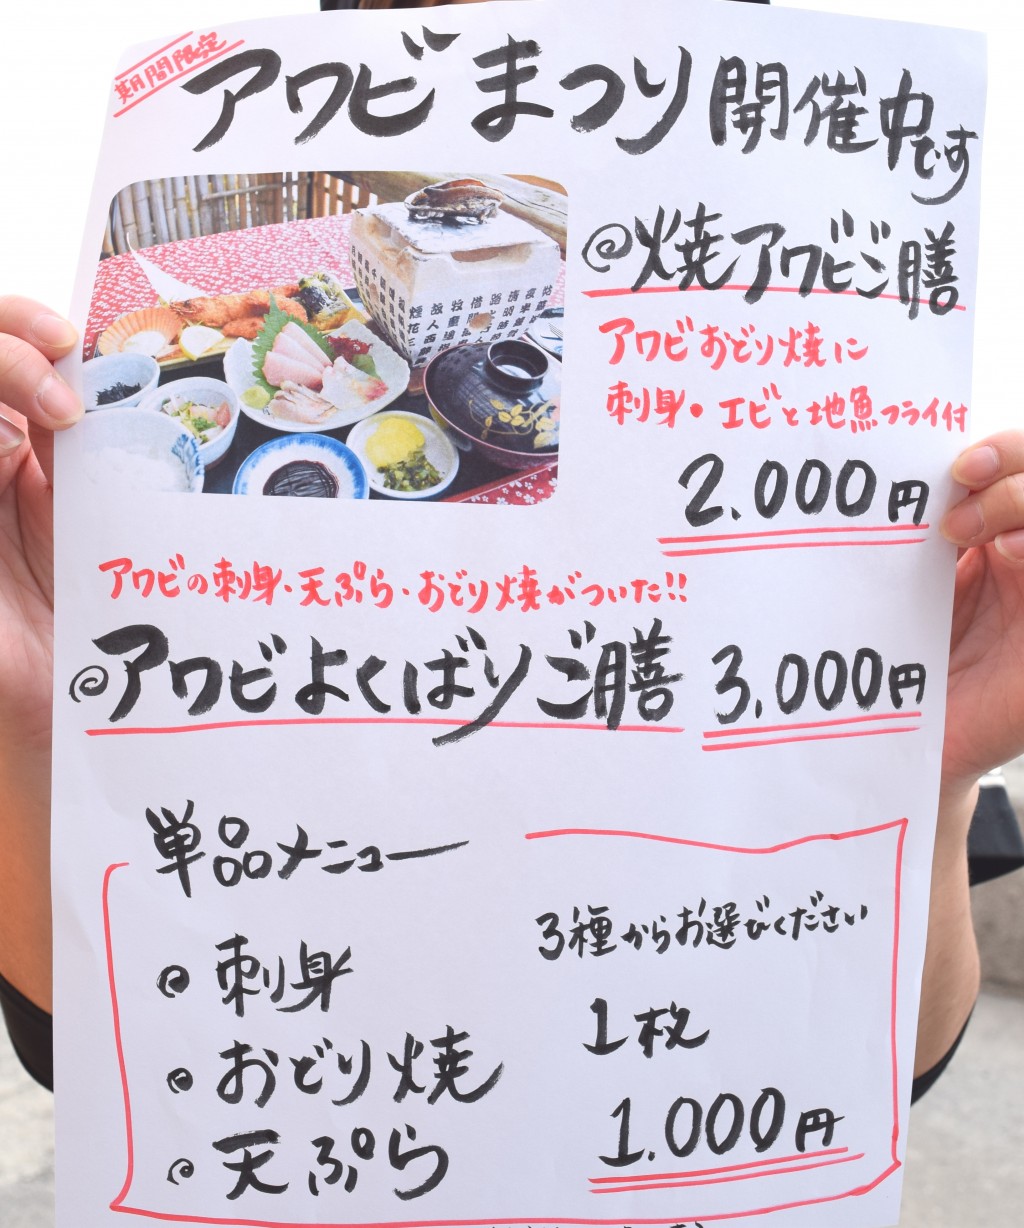 期間限定
アワビまつり開催中です
焼アワビご膳
アワビおどり焼に
刺身・エビと地魚フライ付
2.000円
アワビの刺身・天ぷら・おどり焼がついた!!
アワビよくばりご膳 3.000円
単品メニュー
3種からお選びください
・刺身
・おどり焼
・天ぷら
1枚
1.000円